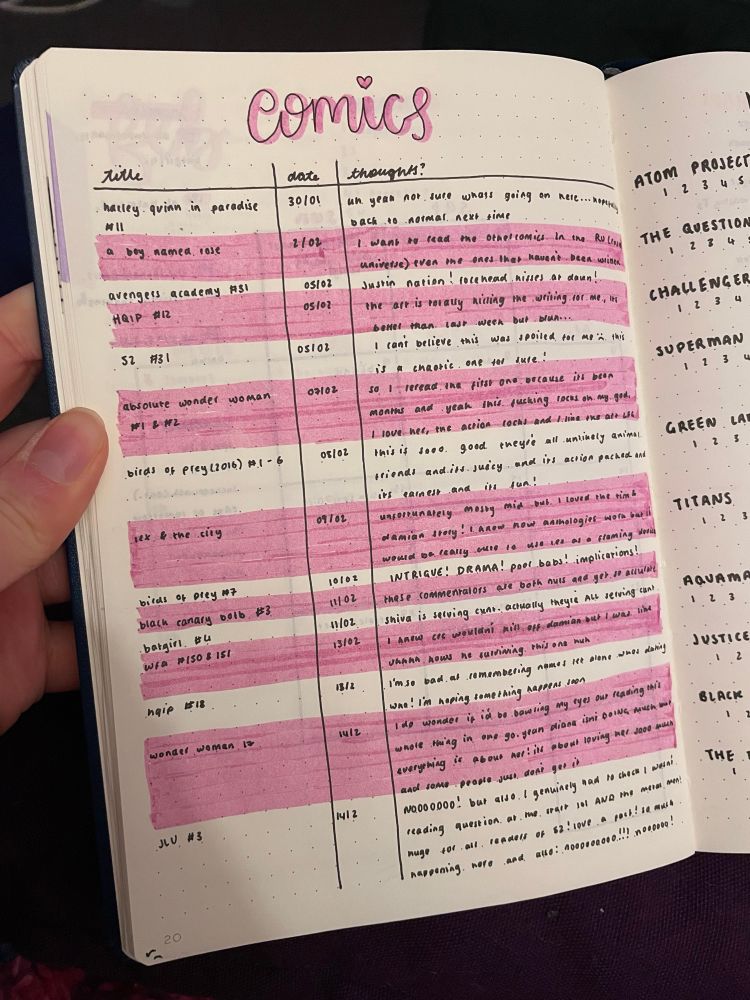 comics
title date thoughts?
harley quinn in paradise 30/01 uh yeah not sure whats going on here...hopefully
#11 back to normal next time
a boy named rose 2/02 I want to read the other comics in the RU
universe) even the ones that havent been written
avengers academy #31 05/02 Justin nation! forehead kisses at dawn!
HQIP #12 05/02 the art is totally killing the writing for me, its
better than last week but bruh...
S2 #31 05/02 I cant believe this was spoiled for me this
is a chaotic one for sure!
absolute wonder woman 07/02 so I reread the first one because its been
#1 & #2 months and yeah this fucking rocks oh my god,
I love her, the action rocks and I like the art
birds of prey(2016) #1-6 08/02 this is sooo good theyre all unlikely animal
friends and its juicy and its action packed and
its earnest and its fun!
sex & the city 09/02 unfortunately mostly mid but I loved the tim &
damian story! I know how anthologies work but it
would be really cute to use as a framing device
birds of prey #7 10/02 INTRIGUE! DRAMA! poor babs! implications!
black canary botb #3 11/02 these commentators are both nuts and get so accurate
batgirl #4 11/02 shiva is serving cunt. actually theyre ALL serving cunt
wfa #150 & 151 13/02 I knew crc wouldnt kill off damian but I was like
uhhhh hows he surviving this one huh
hqip #18 13/2 I'm so bad at remembering names let alone whos dating
who! I'm hoping something happens soon
wonder woman 17 14/2 I do wonder if id be bawling my eyes out reading this
whole thing in one go. yeah diana isnt DOING much but
everything is about her! its about loving her sooo much
and some people just dont get it
JLU #3 14/2 NOOOOOOO! but also I genuinely had to check I wasnt
reading question at the start lol AND the metal men!
huge for all readers of S2! love a pact! so much
happening here and also: nooooooooo!!! noooooo!
20
ATOM PROJECT
1 2 3 4 5
THE QUESTION
1 2 3 4
CHALLENGER
1 2 3 4
SUPERMAN
1 2 3
GREEN LA
1 2 3
TITANS
1 2 3
AQUAMA
1 2 3
JUSTICE
1 2
BLACK
1 2
THE
1